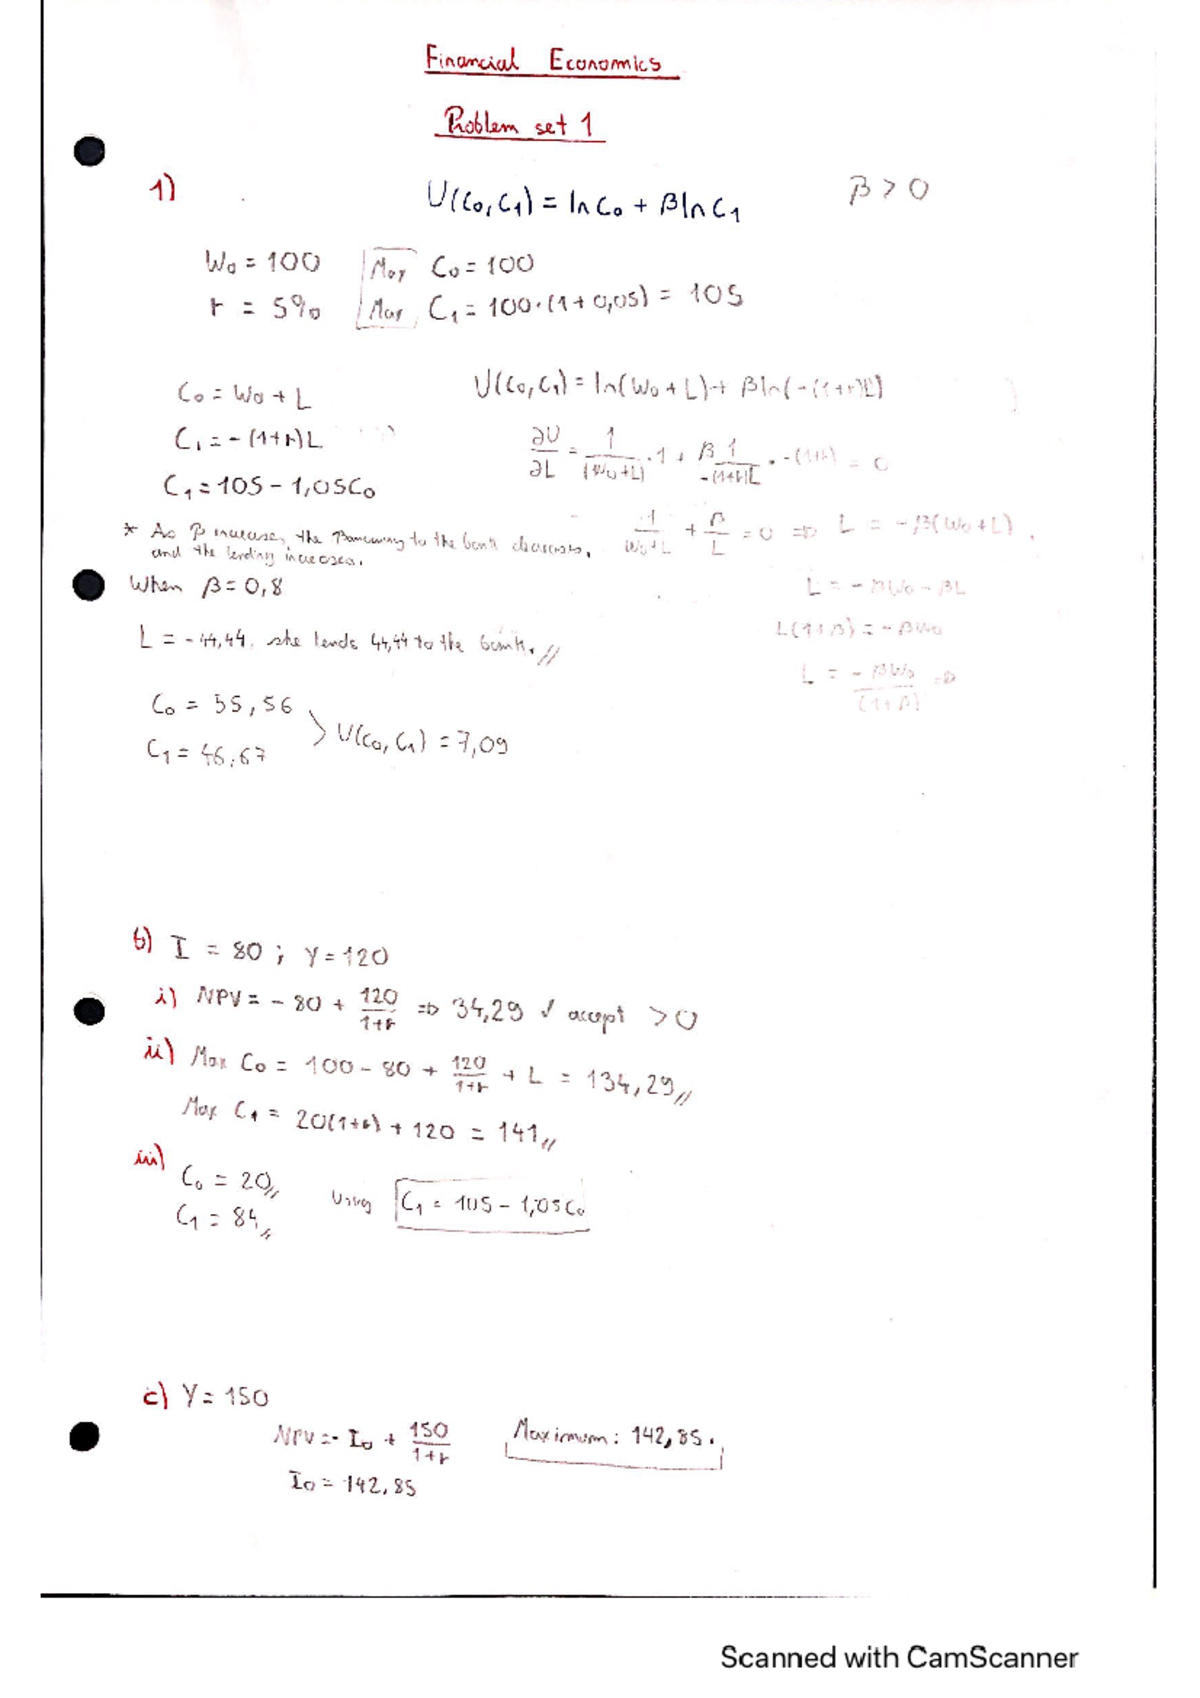 Financial Economics
Problem set 1
1) U(C₀, C₁) = ln C₀ + β ln C₁ β > 0
W₀ = 100 Max C₀ = 100
r = 5% Max C₁ = 100·(1+0,05) = 105
C₀ = W₀ + L U(C₀, C₁) = ln(W₀ + L) + β ln(-(1+r)L)
C₁ = -(1+r)L ∂U/∂L = 1/(W₀+L) · 1 + β 1/-(1+r)L · -(1+r) = 0
C₁ = 105 - 1,05C₀
* As β increase, the Borrowing to the bank decreases, 1/W₀+L + β/L = 0 ⇒ L = -β(W₀+L).
and the lending increases.
When β = 0,8 L = -βW₀ - βL
L = -44,44. she lends 44,44 to the bank. // L(1+β) = -βW₀
L = -βW₀/(1+β) ⇒
C₀ = 55,56
C₁ = 46,67 > U(C₀, C₁) = 7,09
b) I = 80 ; Y = 120
i) NPV = - 80 + 120/1+r ⇒ 34,29 ✓ accept > 0
ii) Max C₀ = 100 - 80 + 120/1+r + L = 134,29 //
Max C₁ = 20(1+r) + 120 = 141 //
iii) C₀ = 20 //
C₁ = 84 // Using C₁ = 105 - 1,05C₀
c) Y = 150
NPV = - I₀ + 150/1+r Maximum: 142,85.
I₀ = 142,85
Scanned with CamScanner